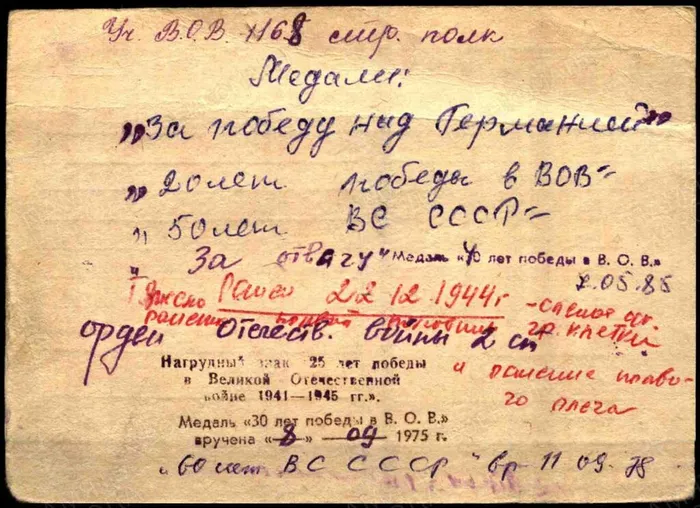 Уч. В.О.В. 1168 стр. полк
Медали:
„За победу над Германией"
„20 лет победы в ВОВ"
„50 лет ВС СССР"
„За отвагу" Медаль «40 лет победы в В. О. В.»
2.05.85
Тяжело Ранен 22 12 1944г -
ранение левой половины гр. клетки
орден Отечеств. войны 2 ст
Нагрудный знак 25 лет победы
в Великой Отечественной
войне 1941—1945 гг.».
и ранение право-
го плеча
Медаль «30 лет победы в В. О. В.»
вручена «8» 09 1975 г.
„60 лет ВС СССР" вр 11 09. 78